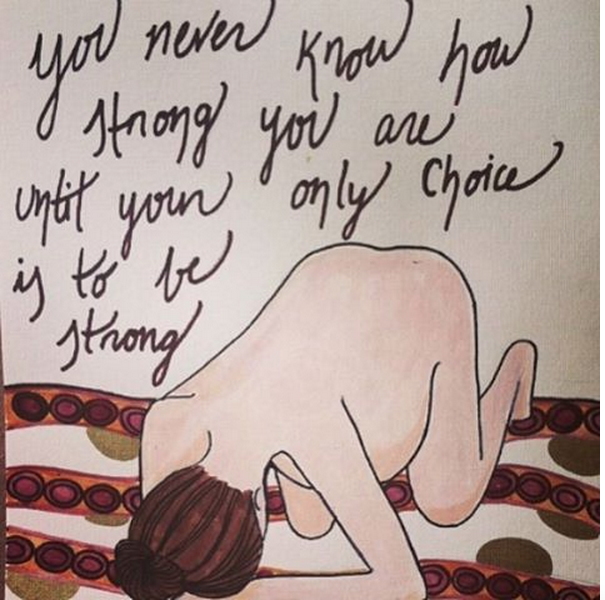 you never know how
strong you are
until your only choice
is to be
strong